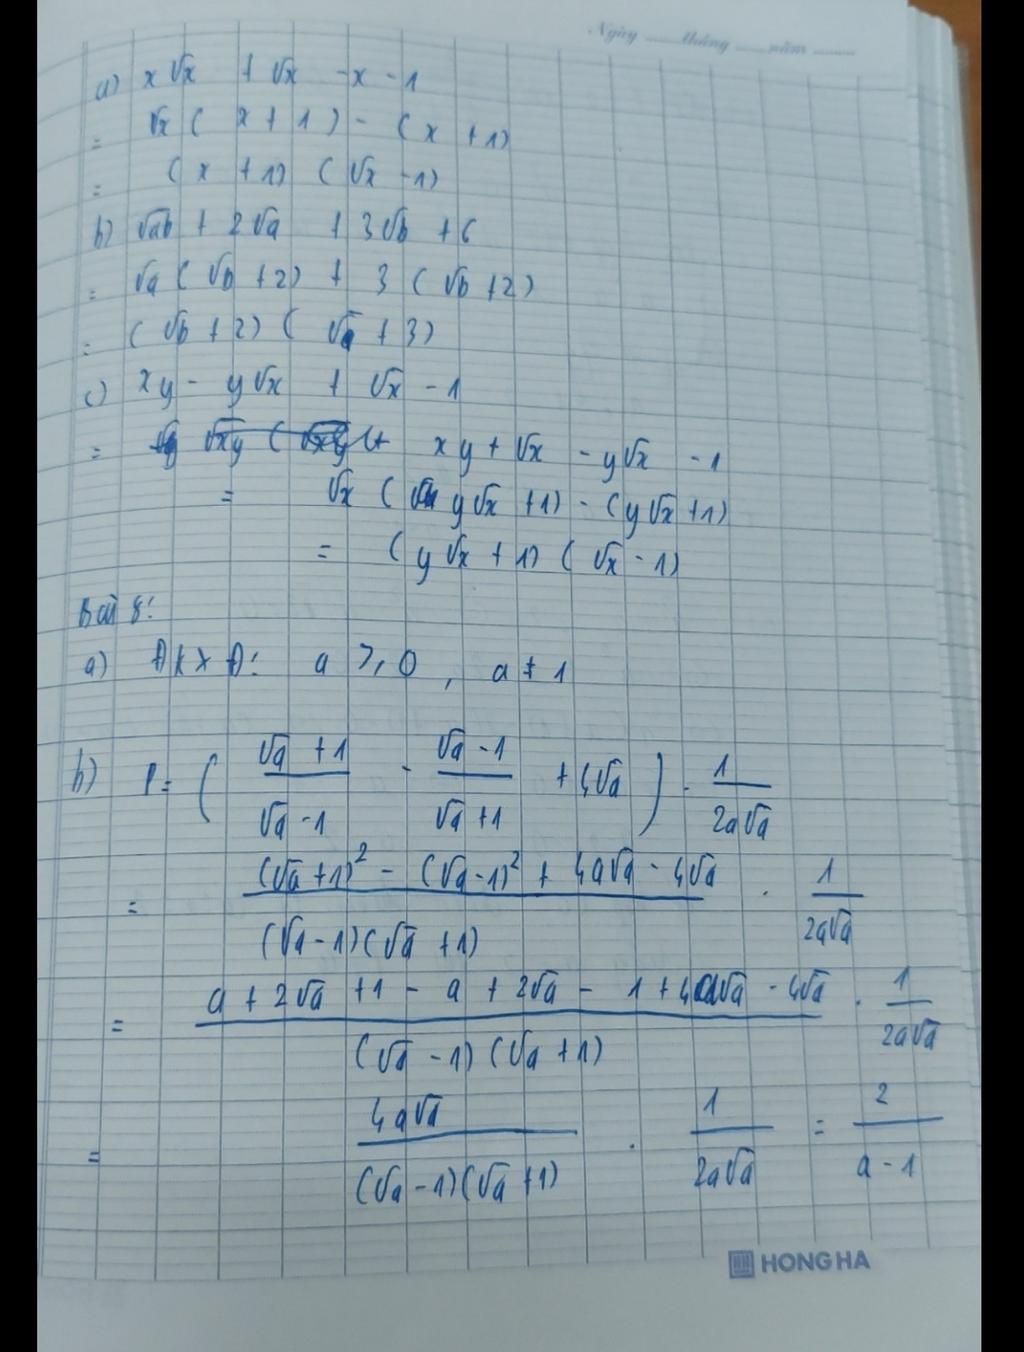 Ngày ...... tháng ...... năm .........
a) x√x + √x - x - 1
= √x ( x + 1 ) - ( x + 1)
= ( x + 1) ( √x - 1)
b) √ab + 2√a + 3√b + 6
= √a ( √b + 2) + 3 ( √b + 2)
= ( √b + 2) ( √a + 3)
c) xy - y√x + √x - 1
= xy + √x - y√x - 1
= √x ( y√x + 1) - (y√x + 1)
= ( y√x + 1) ( √x - 1)
Bài 8:
a) ĐKXĐ: a ⩾ 0 , a ≠ 1
b) P = ( (√a + 1)/(√a - 1) - (√a - 1)/(√a + 1) + 4√a ) . 1/(2a√a)
= ((√a + 1)² - (√a - 1)² + 4a√a - 4√a)/((√a - 1)(√a + 1)) . 1/(2a√a)
= (a + 2√a + 1 - a + 2√a - 1 + 4a√a - 4√a)/((√a - 1)(√a + 1)) . 1/(2a√a)
= 4a√a/((√a - 1)(√a + 1)) . 1/(2a√a) = 2/(a - 1)
HONG HA